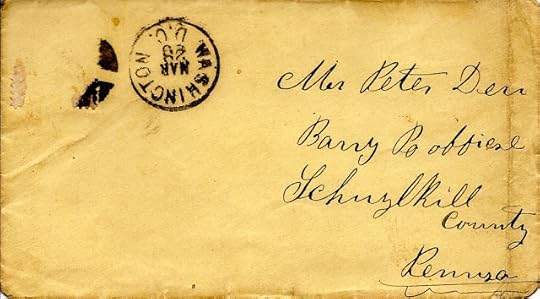 WASHINGTON D.C.
MAR
25
Mr Peter Derr
Barry Po offiese
Schuylkill
County
Pennsa